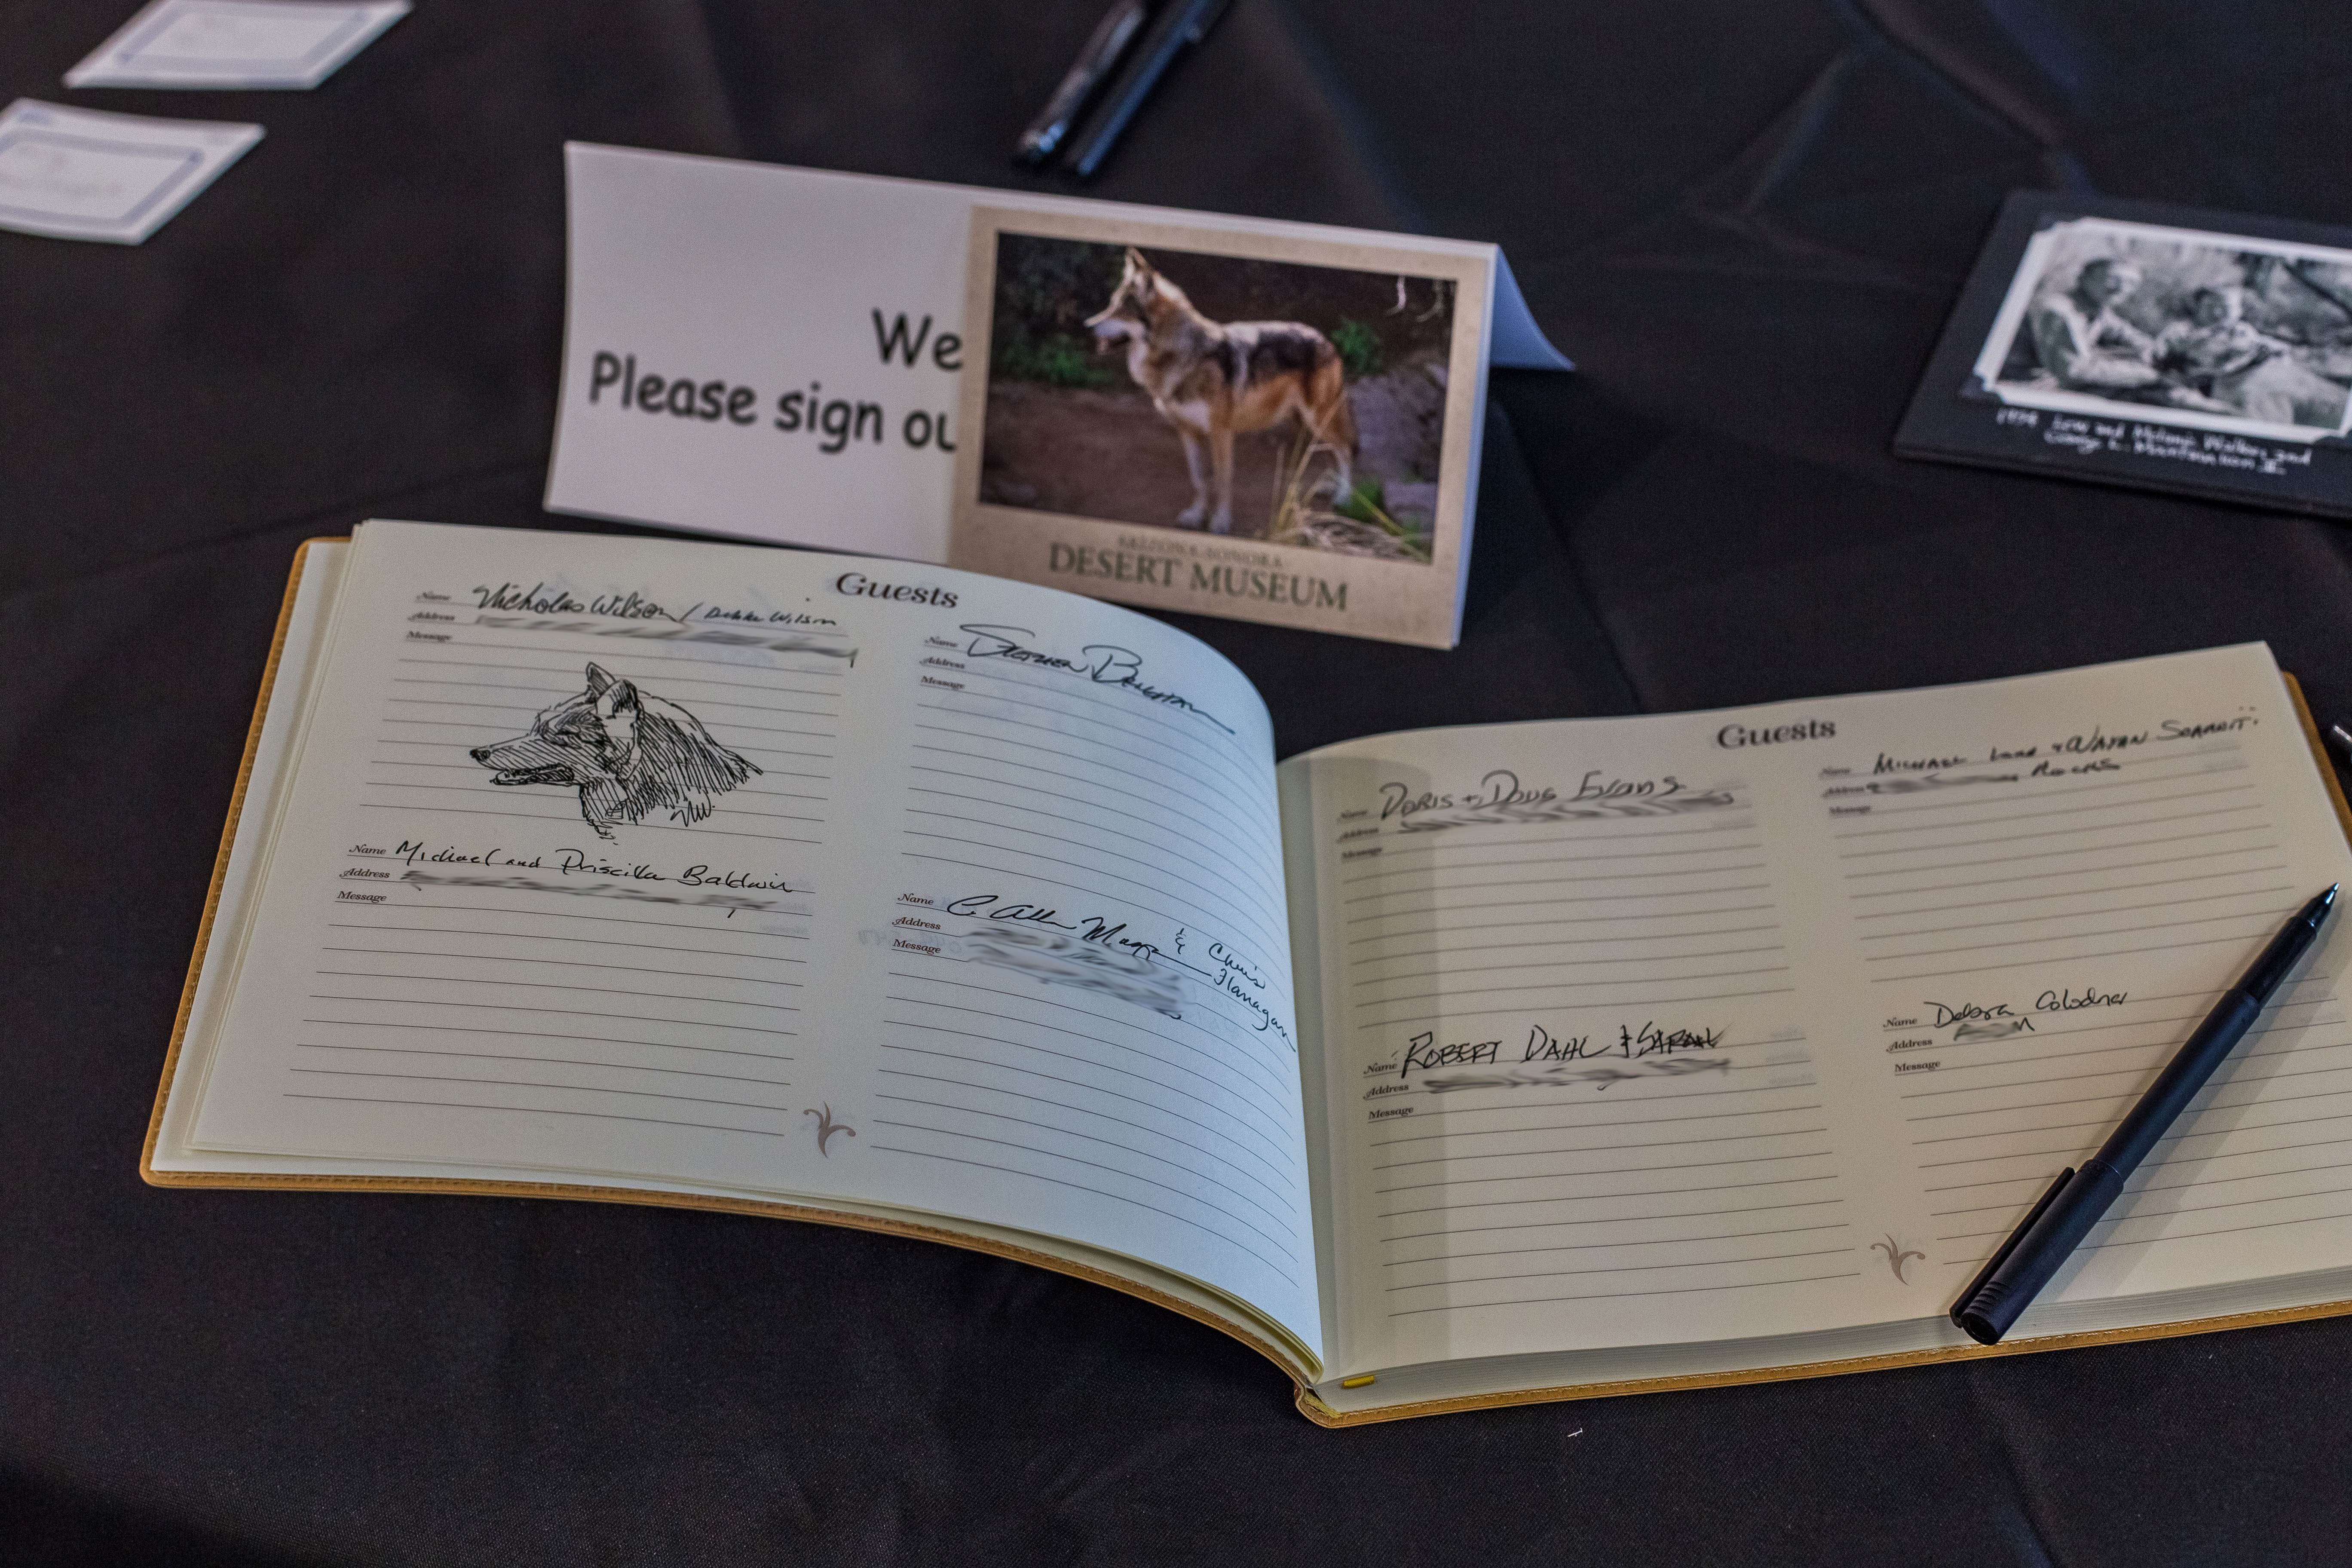 We
Please sign ou
ARIZONA-SONORA
DESERT MUSEUM
1938 Lew and Walker and
Guests
Name Nicholas Wilson / Debbie Wilson
Address
Message
NW.
Name Michael and Priscilla Baldwin
Address
Message
Name Stephen
Address
Message
Name C. Allan & Chris
Flanagan
Address
Message
Guests
Name Doris + Doug Evans
Address
Message
Name Robert Dahl & Sarah
Address
Message
Name Michael &
Address
Message
Name Debra Colodner
Address
Message